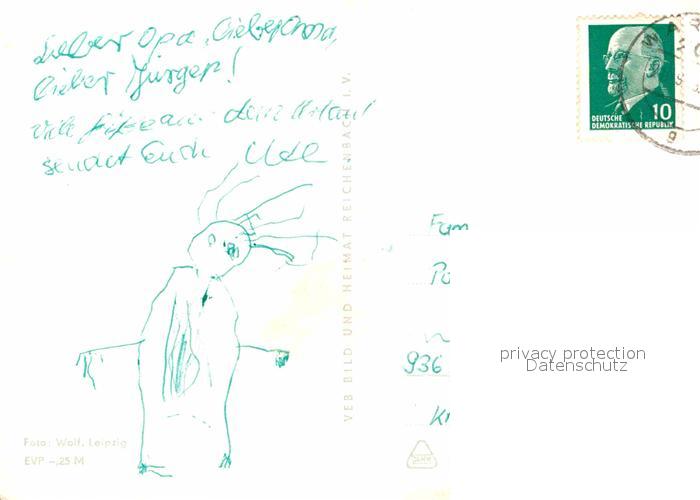 Lieber Opa, liebe Oma,
lieber Jürgen!
viele Grüße aus dem Urlaub
sendet Euch Ute
DEUTSCHE
DEMOKRATISCHE REPUBLIK
10
VEB BILD UND HEIMAT REICHENBACH I. V.
Fam
936
privacy protection
Datenschutz
Foto: Wolf, Leipzig
EVP -,25 M